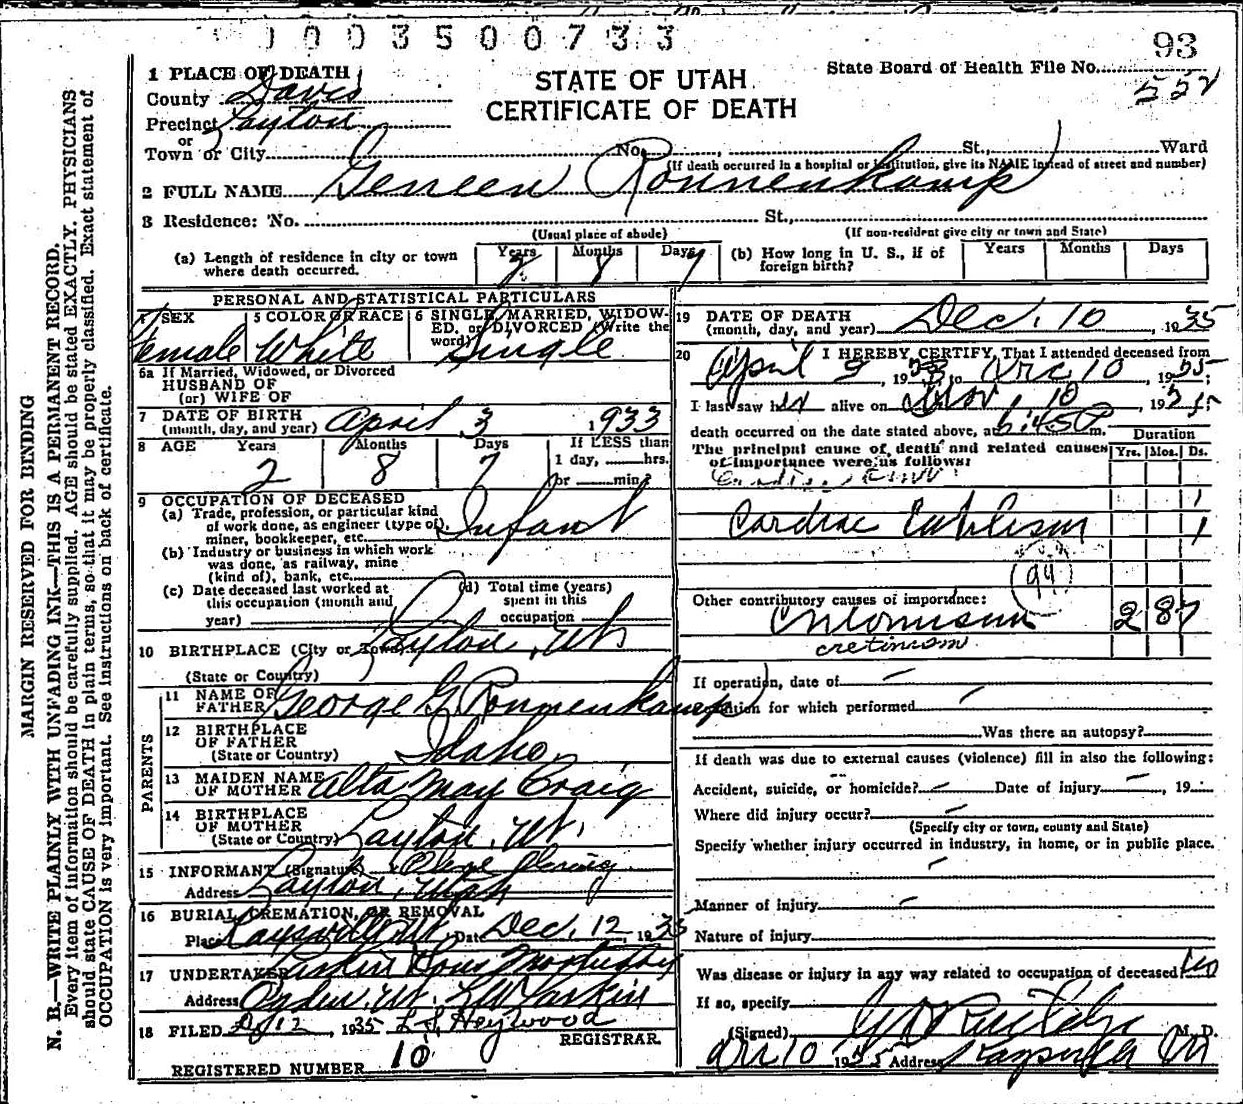 1003500733
93
STATE OF UTAH
CERTIFICATE OF DEATH
State Board of Health File No.
552
1 PLACE OF DEATH
County Davis
Precinct Layton
or
Town or City No. St., Ward
(If death occurred in a hospital or institution, give its NAME instead of street and number)
2 FULL NAME Geneen Ronnenkamp
3 Residence: No. St.,
(Usual place of abode) (If non-resident give city or town and State)
(a) Length of residence in city or town where death occurred. Years 2 Months 8 Days 7
(b) How long in U. S., if of foreign birth? Years Months Days
PERSONAL AND STATISTICAL PARTICULARS
4 SEX Female
5 COLOR OR RACE White
6 SINGLE, MARRIED, WIDOWED, or DIVORCED (Write the word) Single
6a If Married, Widowed, or Divorced
HUSBAND OF
(or) WIFE OF
7 DATE OF BIRTH
(month, day, and year) April 3 1933
8 AGE Years 2 Months 8 Days 7 If LESS than 1 day, hrs. or min.
9 OCCUPATION OF DECEASED
(a) Trade, profession, or particular kind
of work done, as engineer (type of),
miner, bookkeeper, etc. Infant
(b) Industry or business in which work
was done, as railway, mine
(kind of), bank, etc.
(c) Date deceased last worked at
this occupation (month and
year)
(d) Total time (years)
spent in this
occupation
10 BIRTHPLACE (City or Town) Layton, Ut
(State or Country)
PARENTS
11 NAME OF
FATHER George G Ronnenkamp
12 BIRTHPLACE
OF FATHER
(State or Country) Idaho
13 MAIDEN NAME
OF MOTHER Alta May Craig
14 BIRTHPLACE
OF MOTHER
(State or Country) Layton, Ut.
15 INFORMANT (Signature)
Address Layton, Utah
16 BURIAL, CREMATION, OR REMOVAL
Place Kaysville Ut. Date Dec. 12, 1935
17 UNDERTAKER Larkin Sons Mortuary
Address Ogden, Ut. L W Larkin
18 FILED 12, 1935 L. S. Heywood
REGISTRAR.
REGISTERED NUMBER 10
19 DATE OF DEATH
(month, day, and year) Dec. 10, 1935
20 I HEREBY CERTIFY, That I attended deceased from
April 3, 1933 to Dec 10, 1935;
I last saw her alive on 10, 1935;
death occurred on the date stated above, at 6:45 P m.
The principal cause of death and related causes
of importance were as follows:
Duration
Yrs. Mos. Ds.
Cardiac 1
94
Other contributory causes of importance:
2 8 7
cretinism
If operation, date of
Condition for which performed
Was there an autopsy?
If death was due to external causes (violence) fill in also the following:
Accident, suicide, or homicide? Date of injury , 19
Where did injury occur?
(Specify city or town, county and State)
Specify whether injury occurred in industry, in home, or in public place.
Manner of injury
Nature of injury
Was disease or injury in any way related to occupation of deceased? no
If so, specify
(Signed) M. D.
Dec 10 1935 Address Kaysville Ut
MARGIN RESERVED FOR BINDING
N. B.—WRITE PLAINLY WITH UNFADING INK—THIS IS A PERMANENT RECORD.
Every item of information should be carefully supplied. AGE should be stated EXACTLY. PHYSICIANS
should state CAUSE OF DEATH in plain terms, so that it may be properly classified. Exact statement of
OCCUPATION is very important. See instructions on back of certificate.